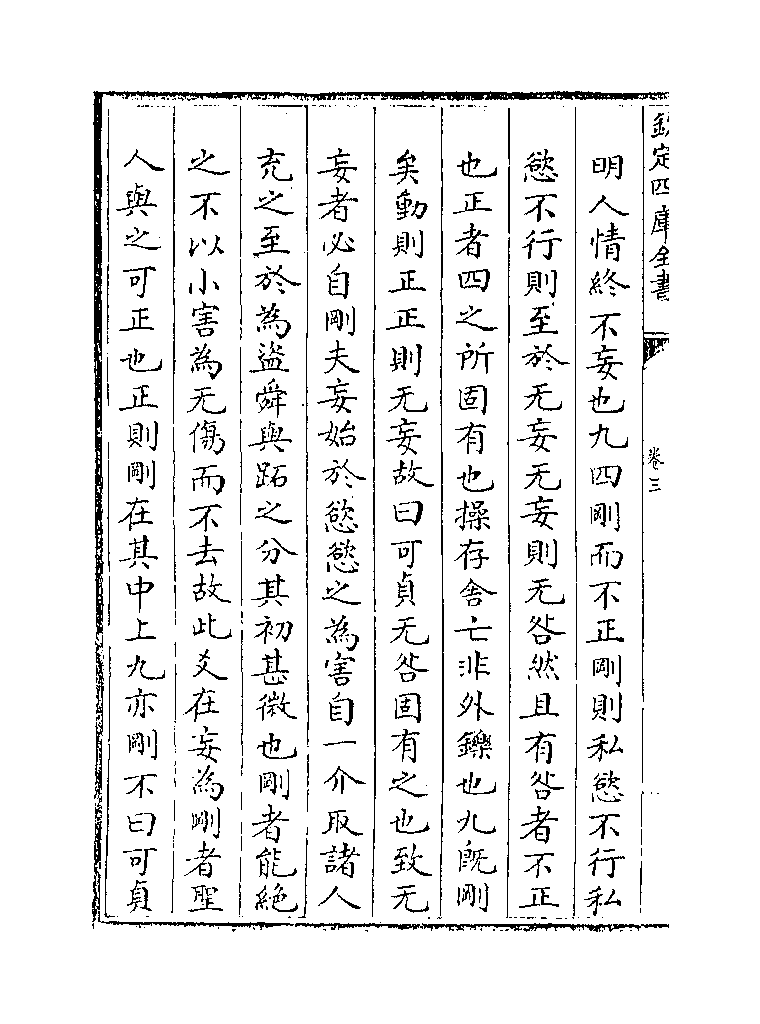 欽定四庫全書
卷三
明人情終不妄也九四剛而不正剛則私慾不行私
慾不行則至於无妄无妄則无咎然且有咎者不正
也正者四之所固有也操存舍亡非外鑠也九既剛
矣動則正正則无妄故曰可貞无咎固有之也致无
妄者必自剛夫妄始於慾慾之為害自一介取諸人
充之至於為盜舜與跖之分其初甚微也剛者能絶
之不以小害為无傷而不去故此爻在妄為剛者聖
人與之可正也正則剛在其中上九亦剛不曰可貞